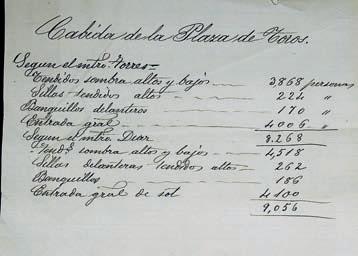 Cabida de la Plaza de Toros.
Segun el mtro Torres=
Tendidos sombra altos y bajos 3,868 personas
Sillas tendidos altos 224 "
Banquillos delanteros 170 "
Entrada gral 4006 "
8.268
Segun el mtro
Tends sombra altos y bajos 4,518
Sillas delanteras tendidos altos 262
Banquillos 186
Entrada gral de sol 4100
9,056